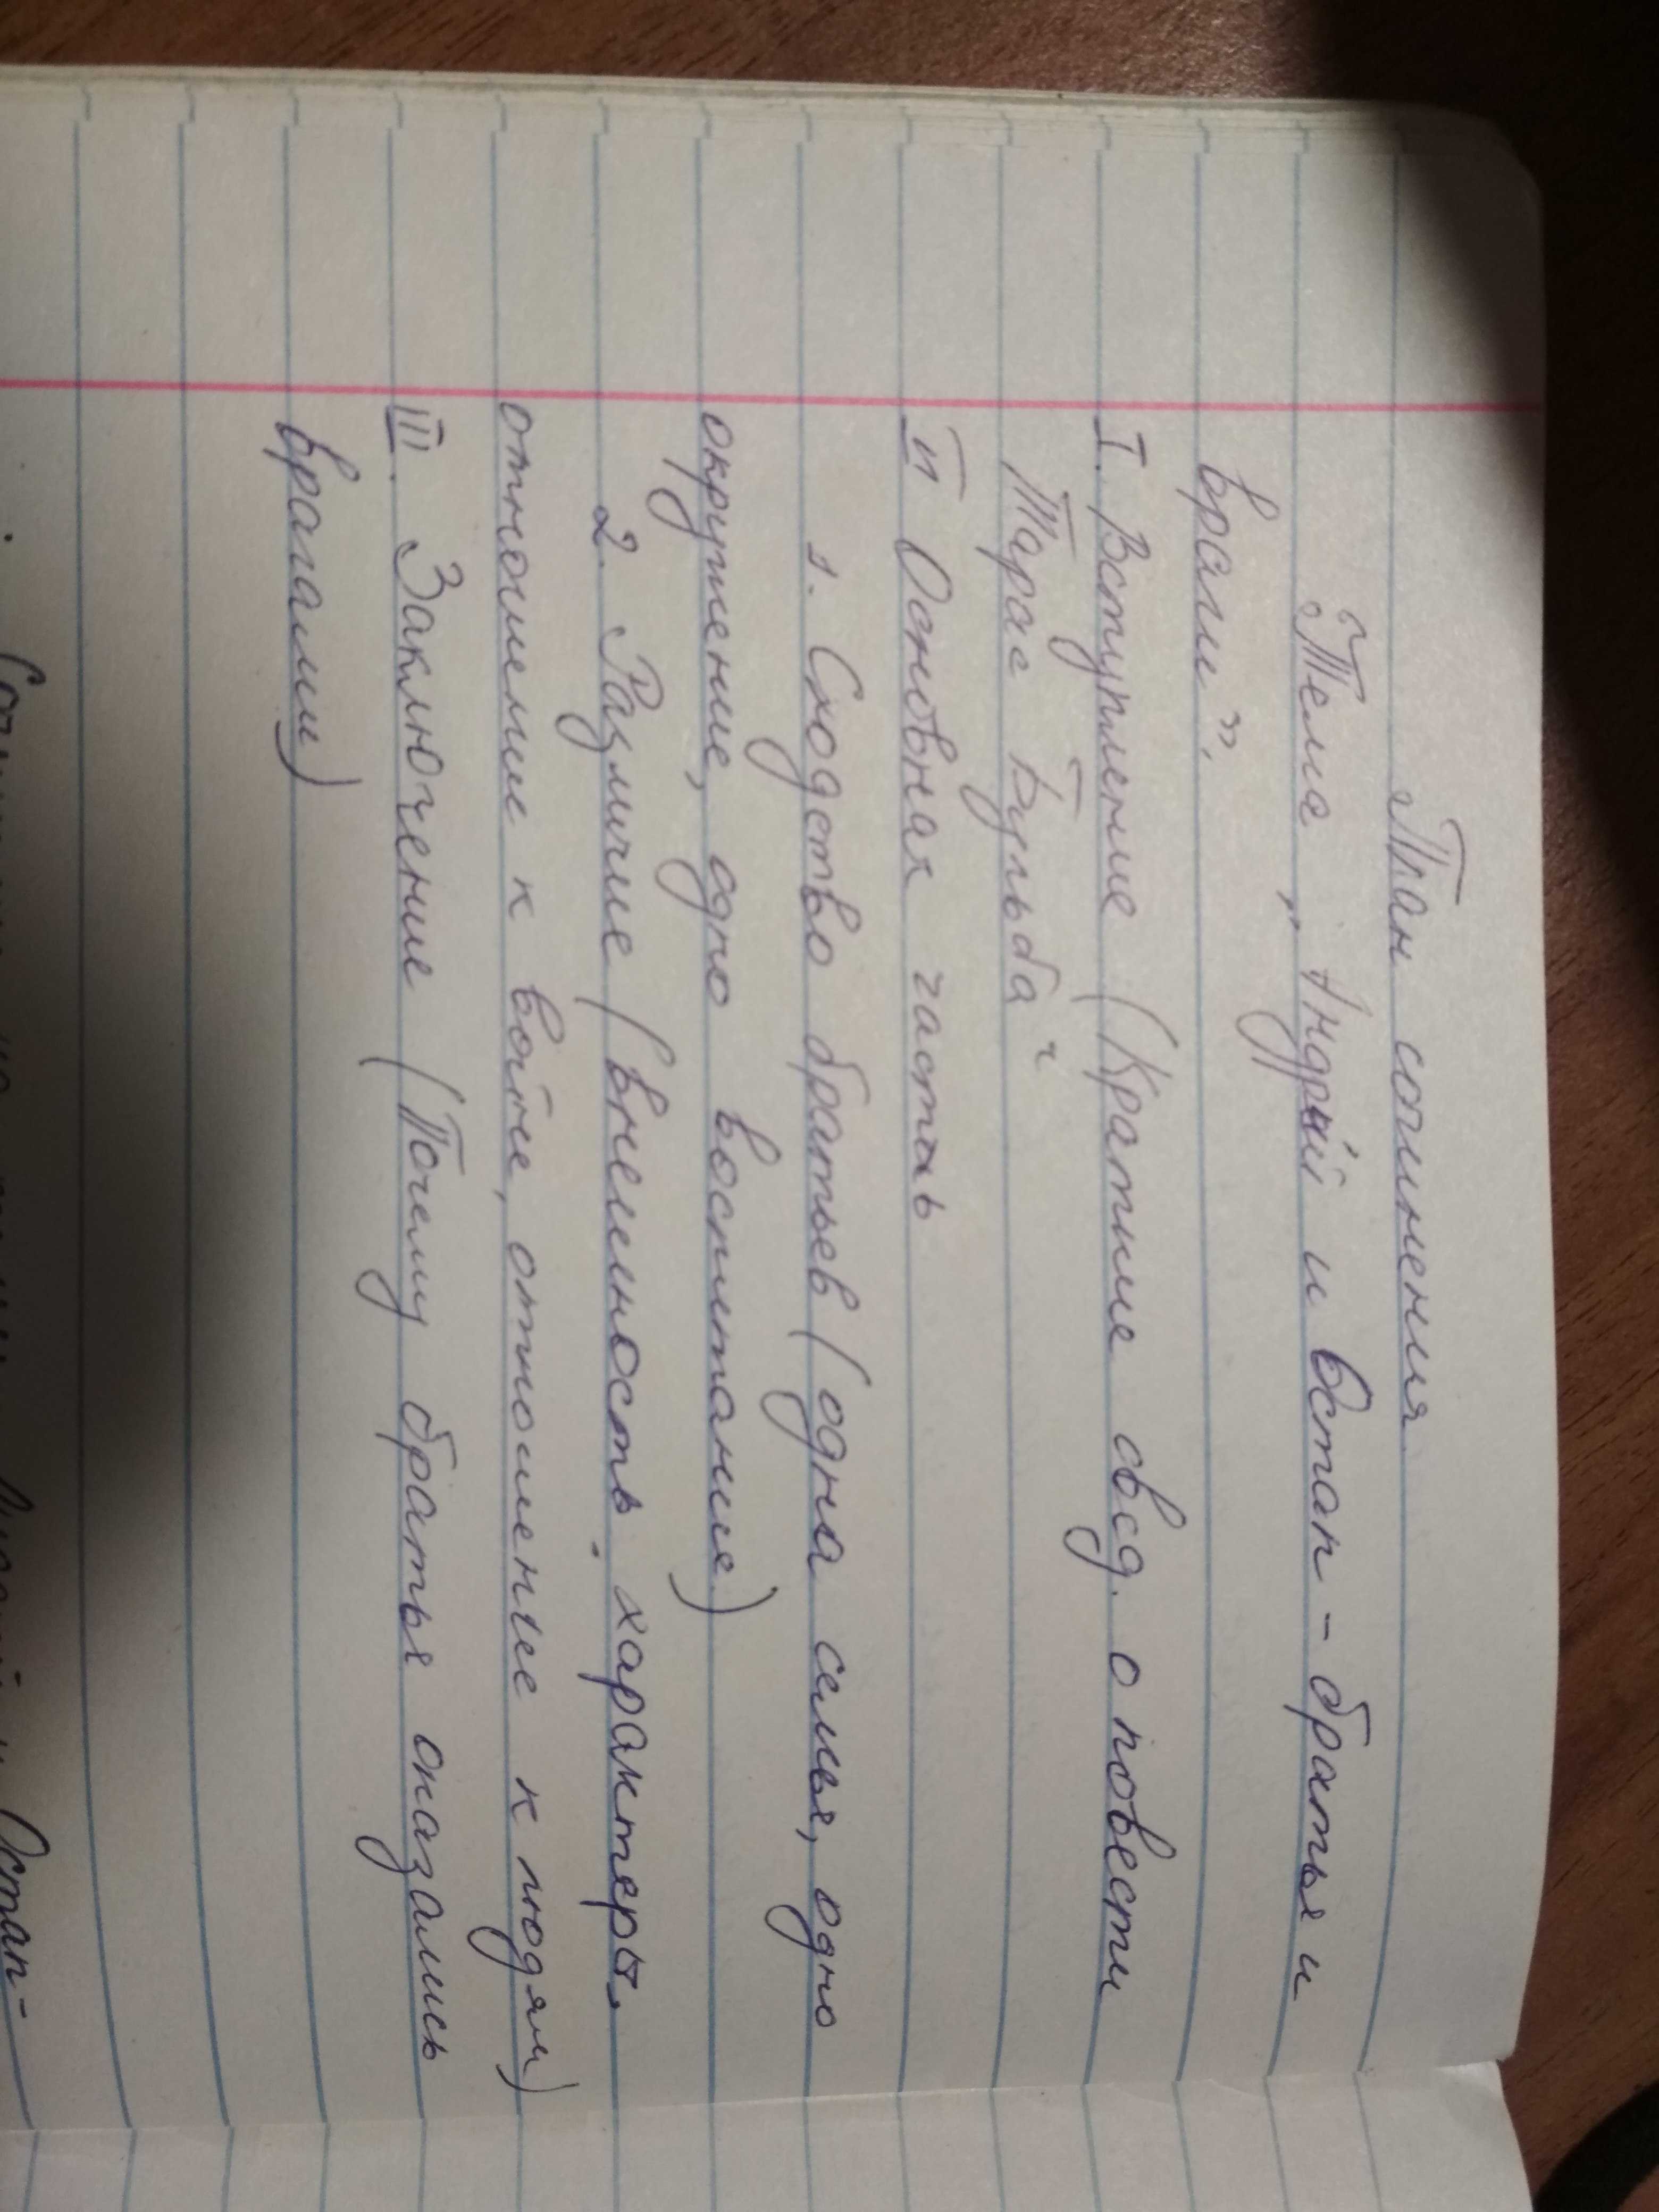 План сочинения
Тема „Андрий и Остап - братья и
враги".
I. Вступление (Краткие свед. о повести
Тарас Бульба"
II Основная часть
1. Сходство братьев (одна семья, одно
окружение, одно воспитание)
2. Различие (внешность, характеры,
отношение к войне, отношение к людям)
III. Заключение (Почему братья оказались
врагами)
Остап-